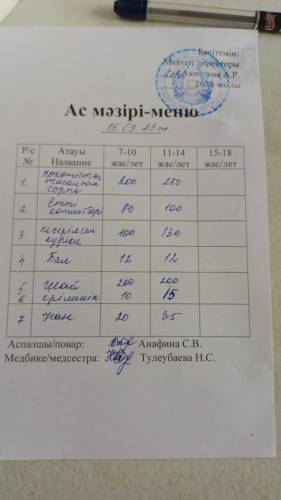 Бекітемін:
Мектеп директоры
Ахметова А.Р.
2023 жылы
Ас мәзірі-меню
15.09.23ж.
Р/с № Атауы Название 7-10 жас/лет 11-14 жас/лет 15-18 жас/лет
1. сорпа 200 250
2 Етті котлеттер 80 100
3 пісірілген күріш 100 130
4 Бал 12 12
5 шай 200 200
6 ірімшік 10 15
7 нан 20 35
Аспазшы/повар: Анафина С.В.
Медбике/медсестра: Тулеубаева Н.С.